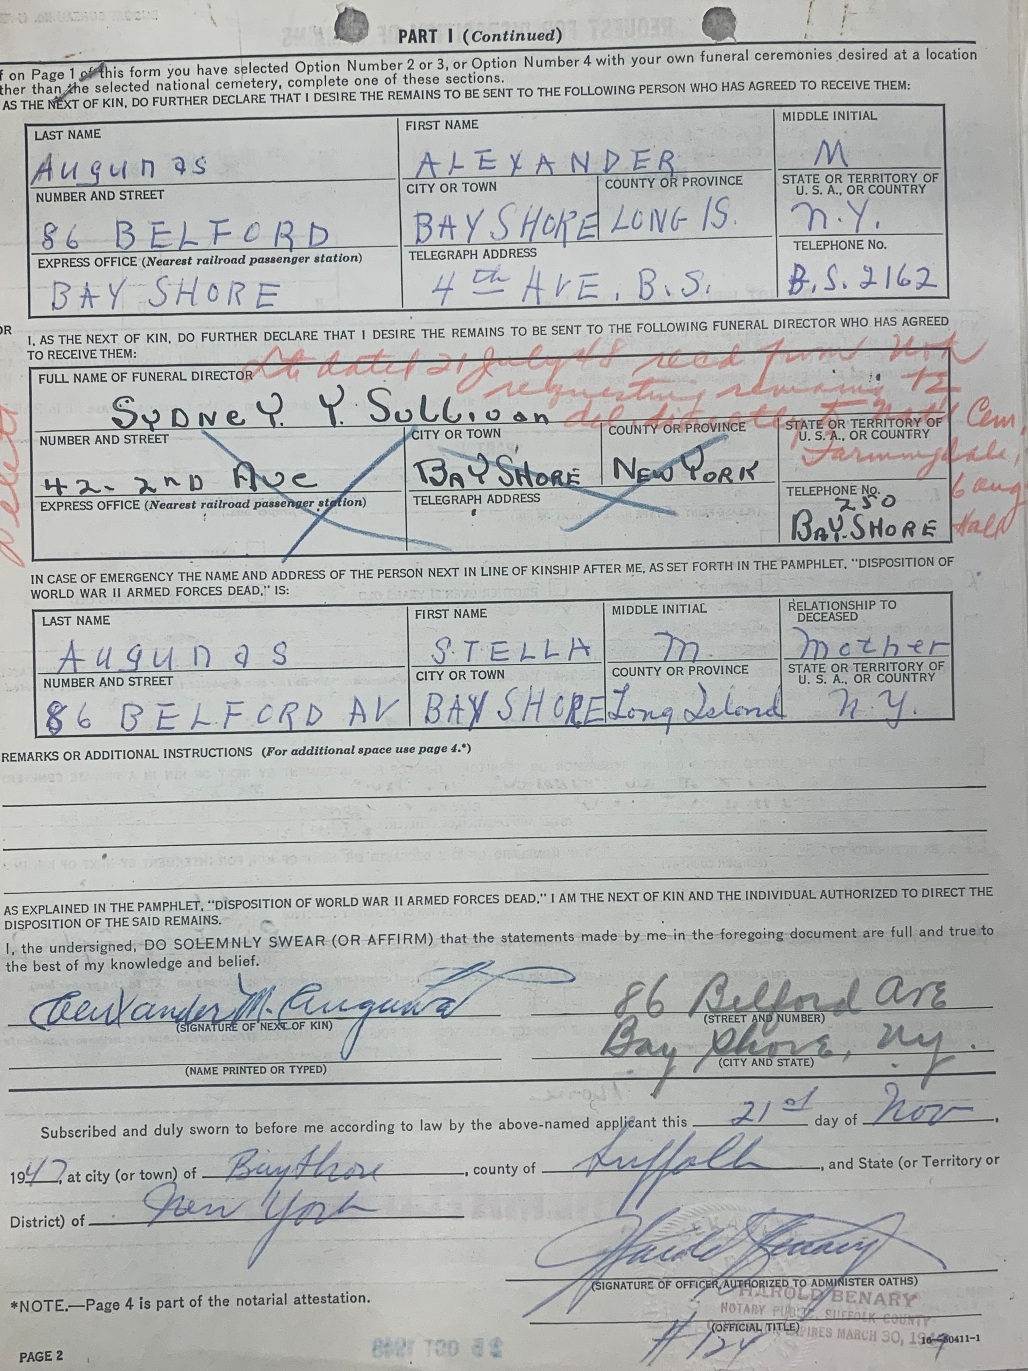 PART I (Continued)
f on Page 1 of this form you have selected Option Number 2 or 3, or Option Number 4 with your own funeral ceremonies desired at a location
ther than the selected national cemetery, complete one of these sections.
AS THE NEXT OF KIN, DO FURTHER DECLARE THAT I DESIRE THE REMAINS TO BE SENT TO THE FOLLOWING PERSON WHO HAS AGREED TO RECEIVE THEM:
LAST NAME FIRST NAME MIDDLE INITIAL
Augunas ALEXANDER M
NUMBER AND STREET CITY OR TOWN COUNTY OR PROVINCE STATE OR TERRITORY OF U. S. A., OR COUNTRY
86 BELFORD BAY SHORE LONG IS. N.Y.
EXPRESS OFFICE (Nearest railroad passenger station) TELEGRAPH ADDRESS TELEPHONE No.
BAY SHORE 4th AVE. B.S. B.S. 2162
OR I, AS THE NEXT OF KIN, DO FURTHER DECLARE THAT I DESIRE THE REMAINS TO BE SENT TO THE FOLLOWING FUNERAL DIRECTOR WHO HAS AGREED
TO RECEIVE THEM:
Ltr dated 21 July 48 recd from NOK
requesting remains be
FULL NAME OF FUNERAL DIRECTOR
SYDNEY Y. Sullivan
Natl Cem.
Farmingdale,
6 aug
NUMBER AND STREET CITY OR TOWN COUNTY OR PROVINCE STATE OR TERRITORY OF U. S. A., OR COUNTRY
42- 2ND Ave BAY SHORE NEW YORK
EXPRESS OFFICE (Nearest railroad passenger station) TELEGRAPH ADDRESS TELEPHONE No.
250
BAY. SHORE
IN CASE OF EMERGENCY THE NAME AND ADDRESS OF THE PERSON NEXT IN LINE OF KINSHIP AFTER ME, AS SET FORTH IN THE PAMPHLET, "DISPOSITION OF
WORLD WAR II ARMED FORCES DEAD," IS:
LAST NAME FIRST NAME MIDDLE INITIAL RELATIONSHIP TO DECEASED
Augunas STELLA M. Mother
NUMBER AND STREET CITY OR TOWN COUNTY OR PROVINCE STATE OR TERRITORY OF U. S. A., OR COUNTRY
86 BELFORD AV BAY SHORE Long Island N.Y.
REMARKS OR ADDITIONAL INSTRUCTIONS (For additional space use page 4.*)
AS EXPLAINED IN THE PAMPHLET, "DISPOSITION OF WORLD WAR II ARMED FORCES DEAD," I AM THE NEXT OF KIN AND THE INDIVIDUAL AUTHORIZED TO DIRECT THE
DISPOSITION OF THE SAID REMAINS.
I, the undersigned, DO SOLEMNLY SWEAR (OR AFFIRM) that the statements made by me in the foregoing document are full and true to
the best of my knowledge and belief.
Alexander M. Augunas 86 Belford Ave
(SIGNATURE OF NEXT OF KIN) (STREET AND NUMBER)
Bay Shore, N.Y.
(NAME PRINTED OR TYPED) (CITY AND STATE)
Subscribed and duly sworn to before me according to law by the above-named applicant this 21st day of Nov,
1947, at city (or town) of Bayshore, county of Suffolk, and State (or Territory or
District) of New York
Harold Benary
(SIGNATURE OF OFFICER AUTHORIZED TO ADMINISTER OATHS)
HAROLD BENARY
*NOTE.—Page 4 is part of the notarial attestation.
NOTARY PUBLIC, SUFFOLK COUNTY
(OFFICIAL TITLE) EXPIRES MARCH 30,
# 124
16-50411-1
PAGE 2